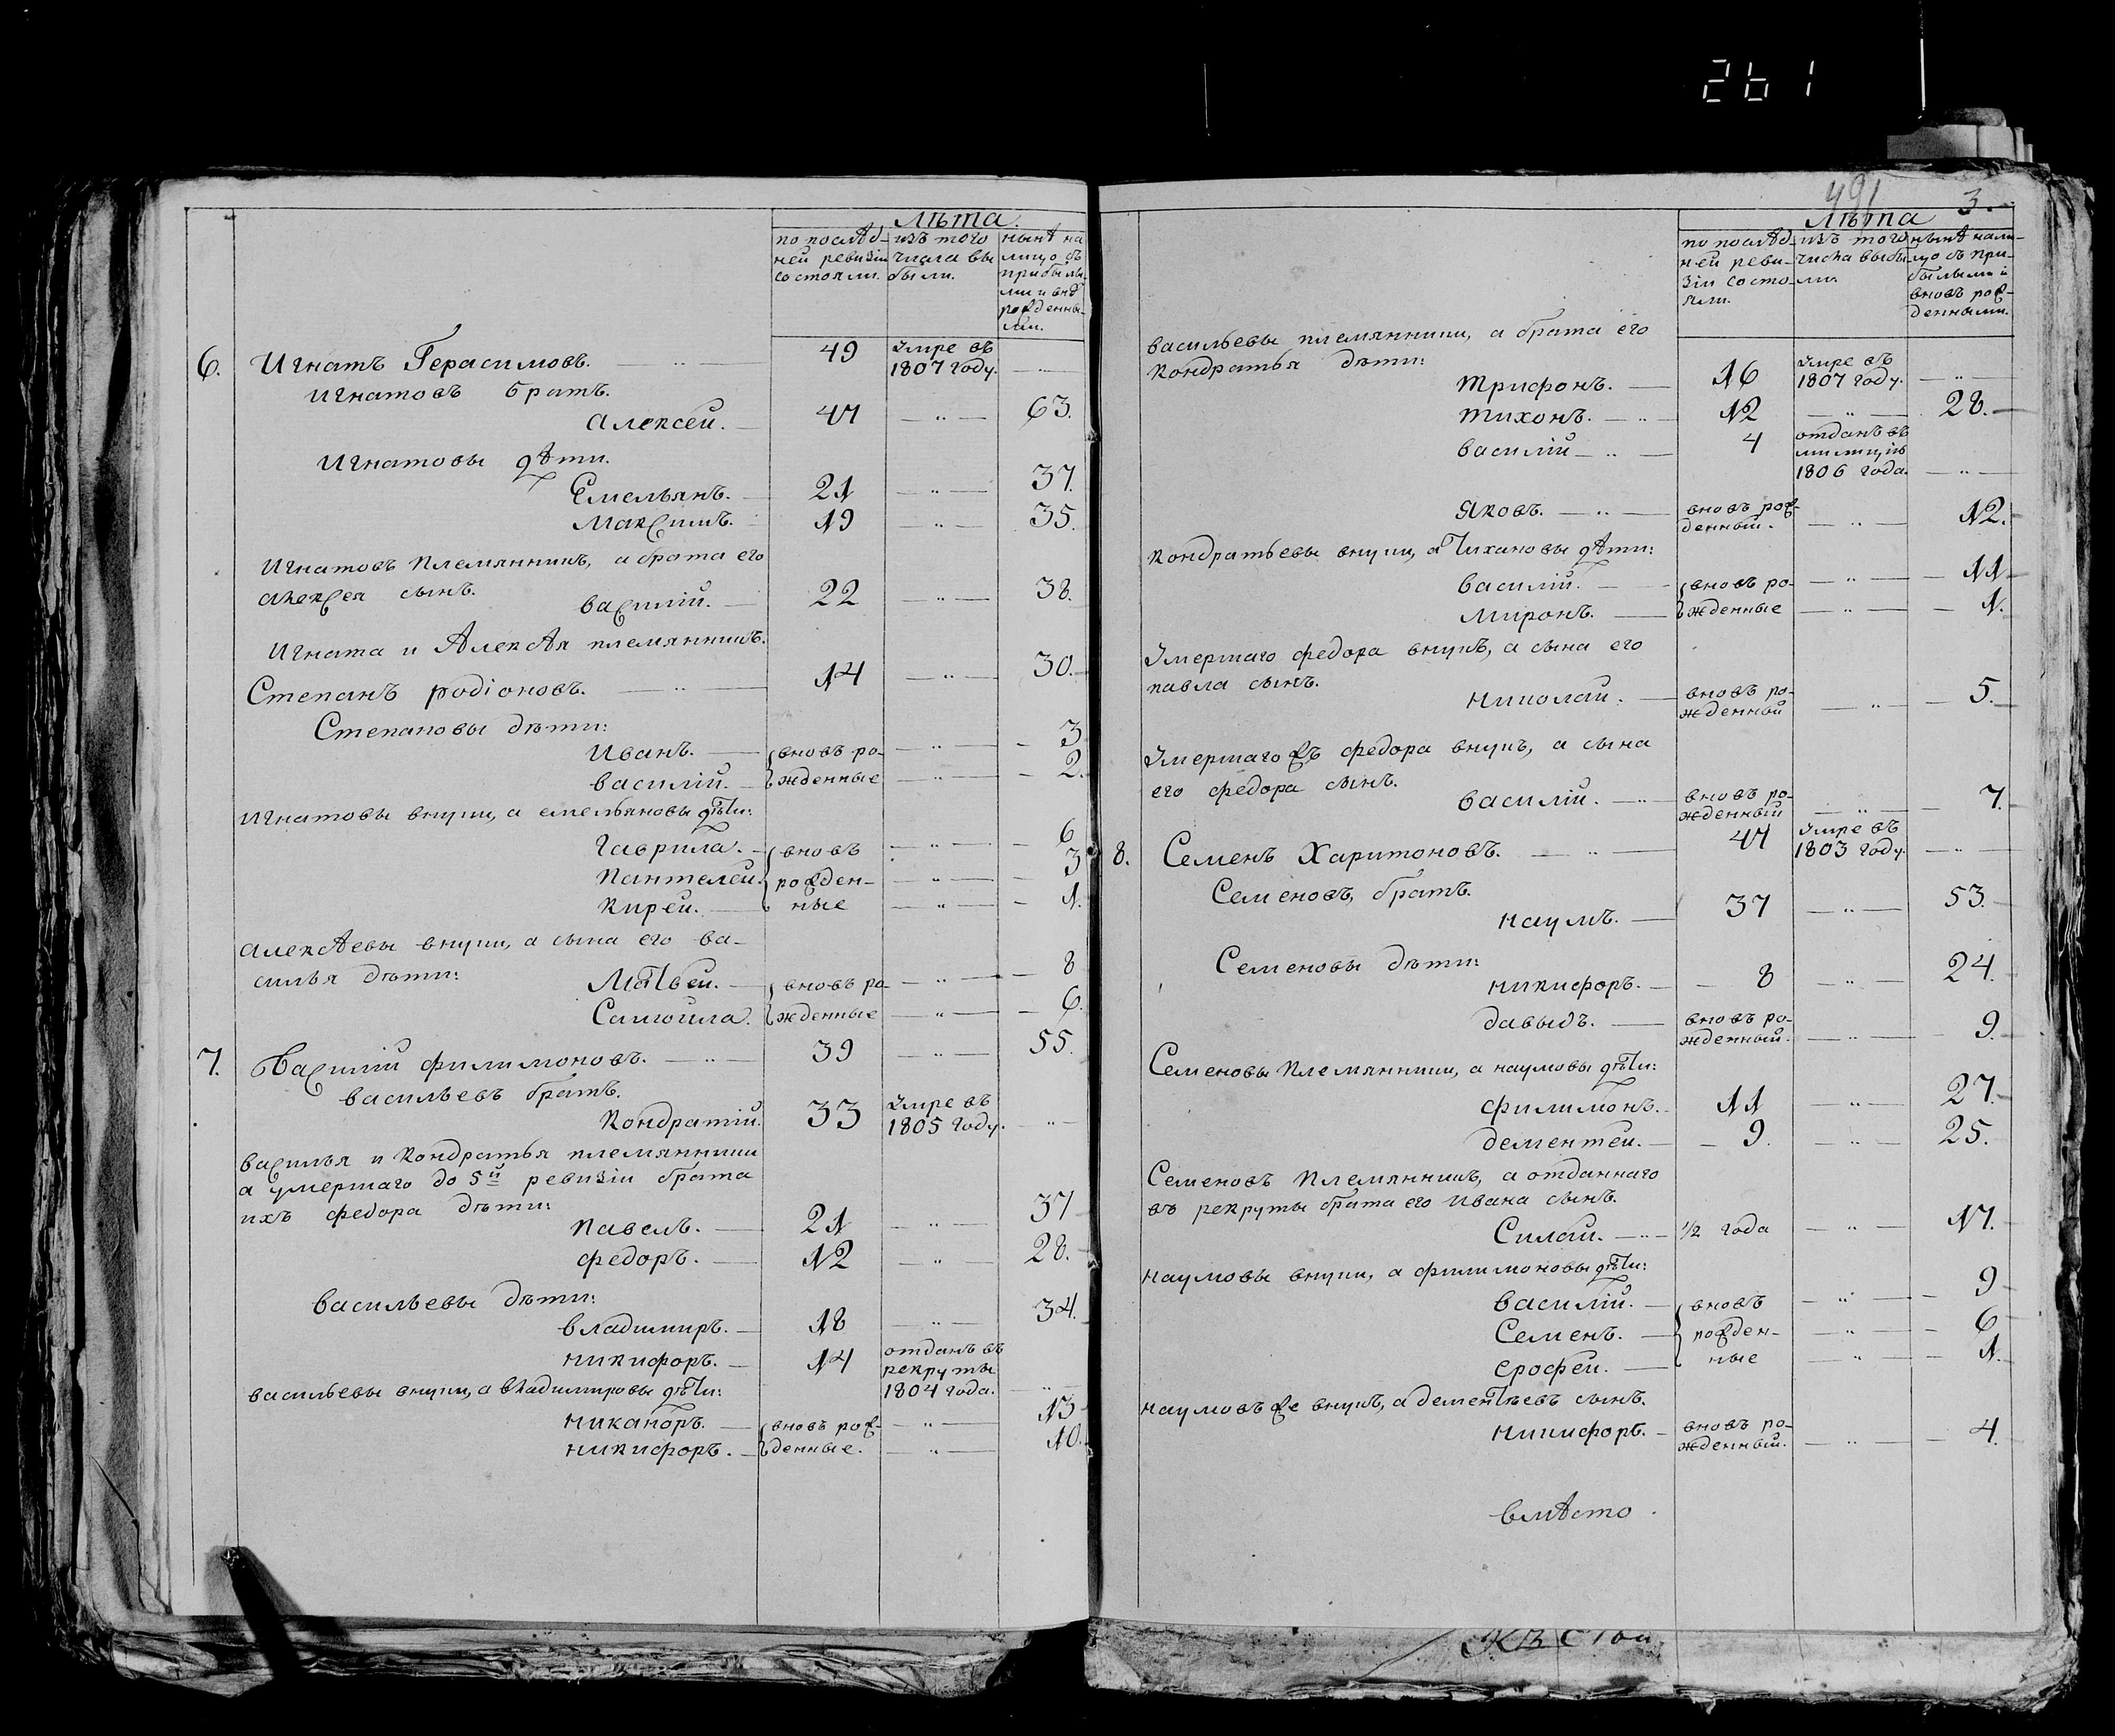 261
Лѣта.
по послѣд- изъ того нынѣ на
ней ревизіи числа вы лицо съ
состояли. были. прибылы-
ми и внѡ
рожденны-
ми.
6. Игнатъ Герасимовъ. 49 Умре въ
1807 году.
Игнатовъ братъ.
Алексей. 47 63.
Игнатовы дѣти.
Емельянъ. 21 37.
Максимъ. 19 35.
Игнатовъ племянникъ, а брата его
Алексея сынъ.
Василій. 22 38.
Игната и Алексѣя племянникъ.
Степанъ родіоновъ. 14 30.
Степановы дѣти:
Иванъ. вновь ро- 3
василій. жденные 2.
Игнатовы внуки, а емельяновы дѣти:
Гаврила. вновь 6
Пантелей. рожден- 3
Кирей. ные 1.
Алексѣевы внуки, а сына его ва-
силья дѣти:
Матвей. вновь ро- 8
Самойла. жденные 6.
7. Василій филимоновъ. 39 55.
васильевъ братъ.
Кондратій. 33 Умре въ
1805 году.
Василья и Кондратья племянники
а умершаго до 5й ревизіи брата
ихъ федора дѣти:
павелъ. 21 37
федоръ. 12 28.
Васильевы дѣти:
владимиръ. 18 34.
никифоръ. 14 отданъ въ
рекруты
1804 года.
васильевы внуки, а владимировы дѣти:
никаноръ. вновь рож- 13
никифоръ. денные. 10.
491 3.
Лѣта
по послѣд- изъ того нынѣ нали-
ней реви- числа выбы- цо съ при-
зіи состо- ли. былыми и
яли. вновь рож-
денными.
васильевы племянники, а брата его
Кондратья дѣти:
Трифонъ. 16 Умре въ
1807 году.
Тихонъ. 12 28.
василій 4 отданъ въ
милицію
1806 года.
Яковъ. вновь рож-
денный. 12.
Кондратьевы внуки, а Тихановы дѣти:
василій. вновь ро- 11
миронъ. жденные 1.
Умершаго федора внукъ, а сына его
павла сынъ.
николай. вновь ро-
жденный 5.
Умершаго жъ федора внукъ, а сына
его федора сынъ.
василій. вновь ро-
жденный 7.
8. Семенъ Харитоновъ. 47 Умре въ
1803 году.
Семеновъ братъ.
наумъ. 37 53.
Семеновы дѣти:
никифоръ. 8 24.
давыдъ. вновь ро-
жденный. 9.
Семеновы племянники, а наумовы дѣти:
филимонъ. 11 27.
дементей. 9. 25.
Семеновъ племянникъ, а отданнаго
въ рекруты брата его ивана сынъ.
Силай. ½ года 17.
наумовы внуки, а филимоновы дѣти:
василій. вновь 9
Семенъ. рожден- 6
ерофей. ные 1.
наумовъ же внукъ, а дементьевъ сынъ.
никифоръ. вновь ро-
жденный. 4.
вмѣсто